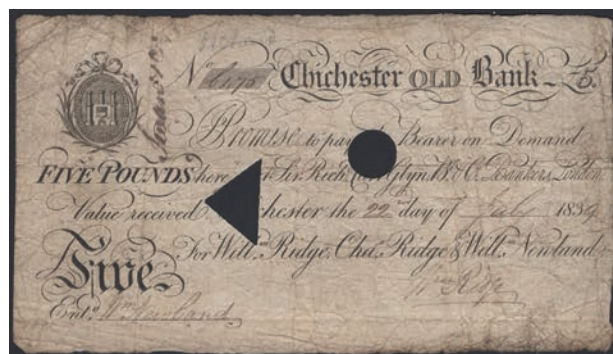 Chichester OLD Bank £5.
PROMISE to pay Bearer on Demand
FIVE POUNDS here Sir Rich. Glyn, B. & C. Bankers London
Value received chester the 22 day of July 183
For Will.m Ridge, Cha.s Ridge & Will.m Newland
Five
Ent.d Wm Newland
Wm Ridge